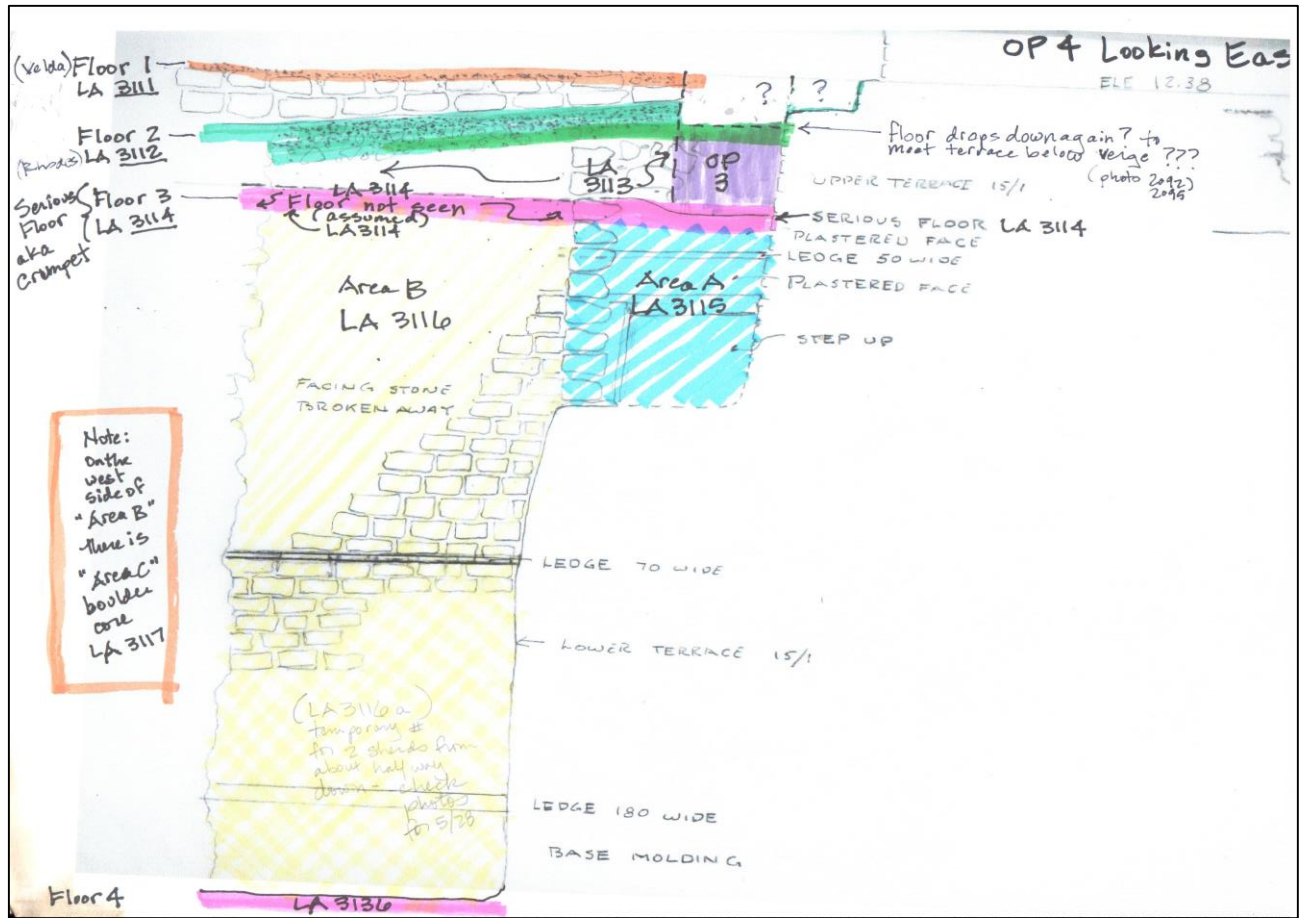 OP 4 Looking Eas
ELE 12.38
(Velda) Floor 1
LA 3111
Floor 2
(Rhodes) LA 3112
Serious Floor aka Crumpet
Floor 3
LA 3114
? ?
floor drops down again? to
meet terrace below verge ???
(photo 2092)
2095
LA
3113
OP
3
UPPER TERRACE 15/1
LA 3114
Floor not seen
(assumed)
LA 3114
SERIOUS FLOOR LA 3114
PLASTERED FACE
LEDGE 50 WIDE
PLASTERED FACE
Area B
LA 3116
Area A
LA 3115
STEP UP
FACING STONE
BROKEN AWAY
Note:
On the
west
side of
"Area B"
there is
"Area C"
boulder
core
LA 3117
LEDGE 70 WIDE
LOWER TERRACE 15/1
(LA 3116 a)
temporary #
for 2 sherds from
about half way
down - check
photos
for 5/28
LEDGE 180 WIDE
BASE MOLDING
Floor 4
LA 3136